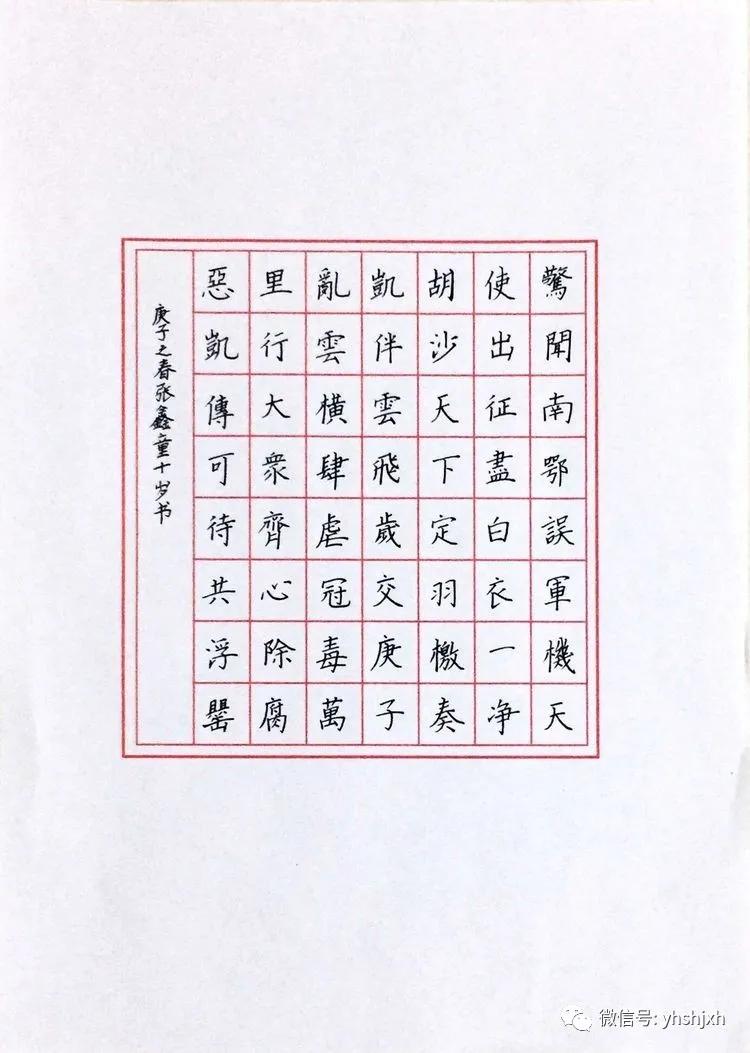 驚聞南鄂誤軍機天
使出征盡白衣一净
胡沙天下定羽檄奏
凱伴雲飛歲交庚子
亂雲橫肆虐冠毒萬
里行大衆齊心除腐
惡凱傳可待共浮罍
庚子之春张鑫童十岁书
微信号: yhshjxh